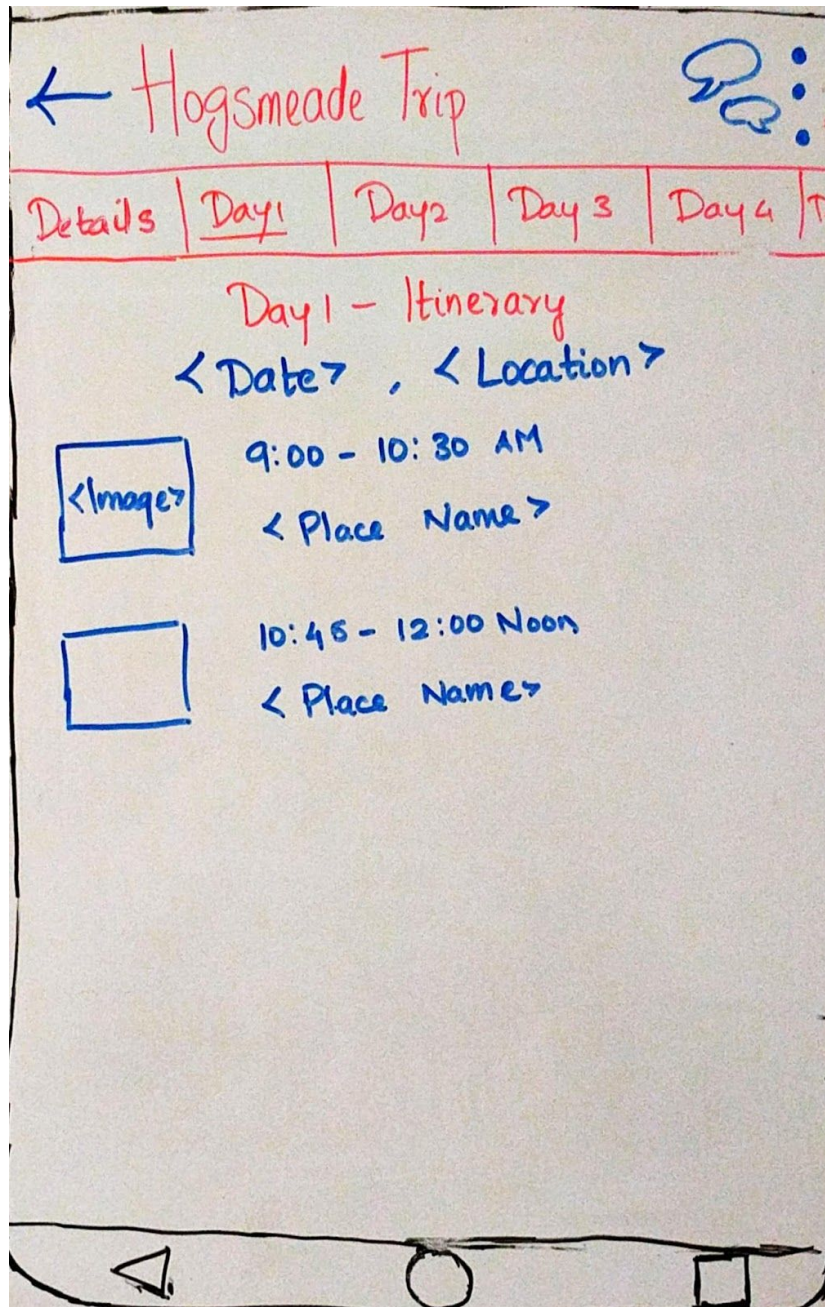 Hogsmeade Trip
Details Day1 Day2 Day 3 Day 4 T
Day 1 - Itinerary
<Date> , <Location>
9:00 - 10:30 AM
<Image>
<Place Name>
10:45 - 12:00 Noon
<Place Name>